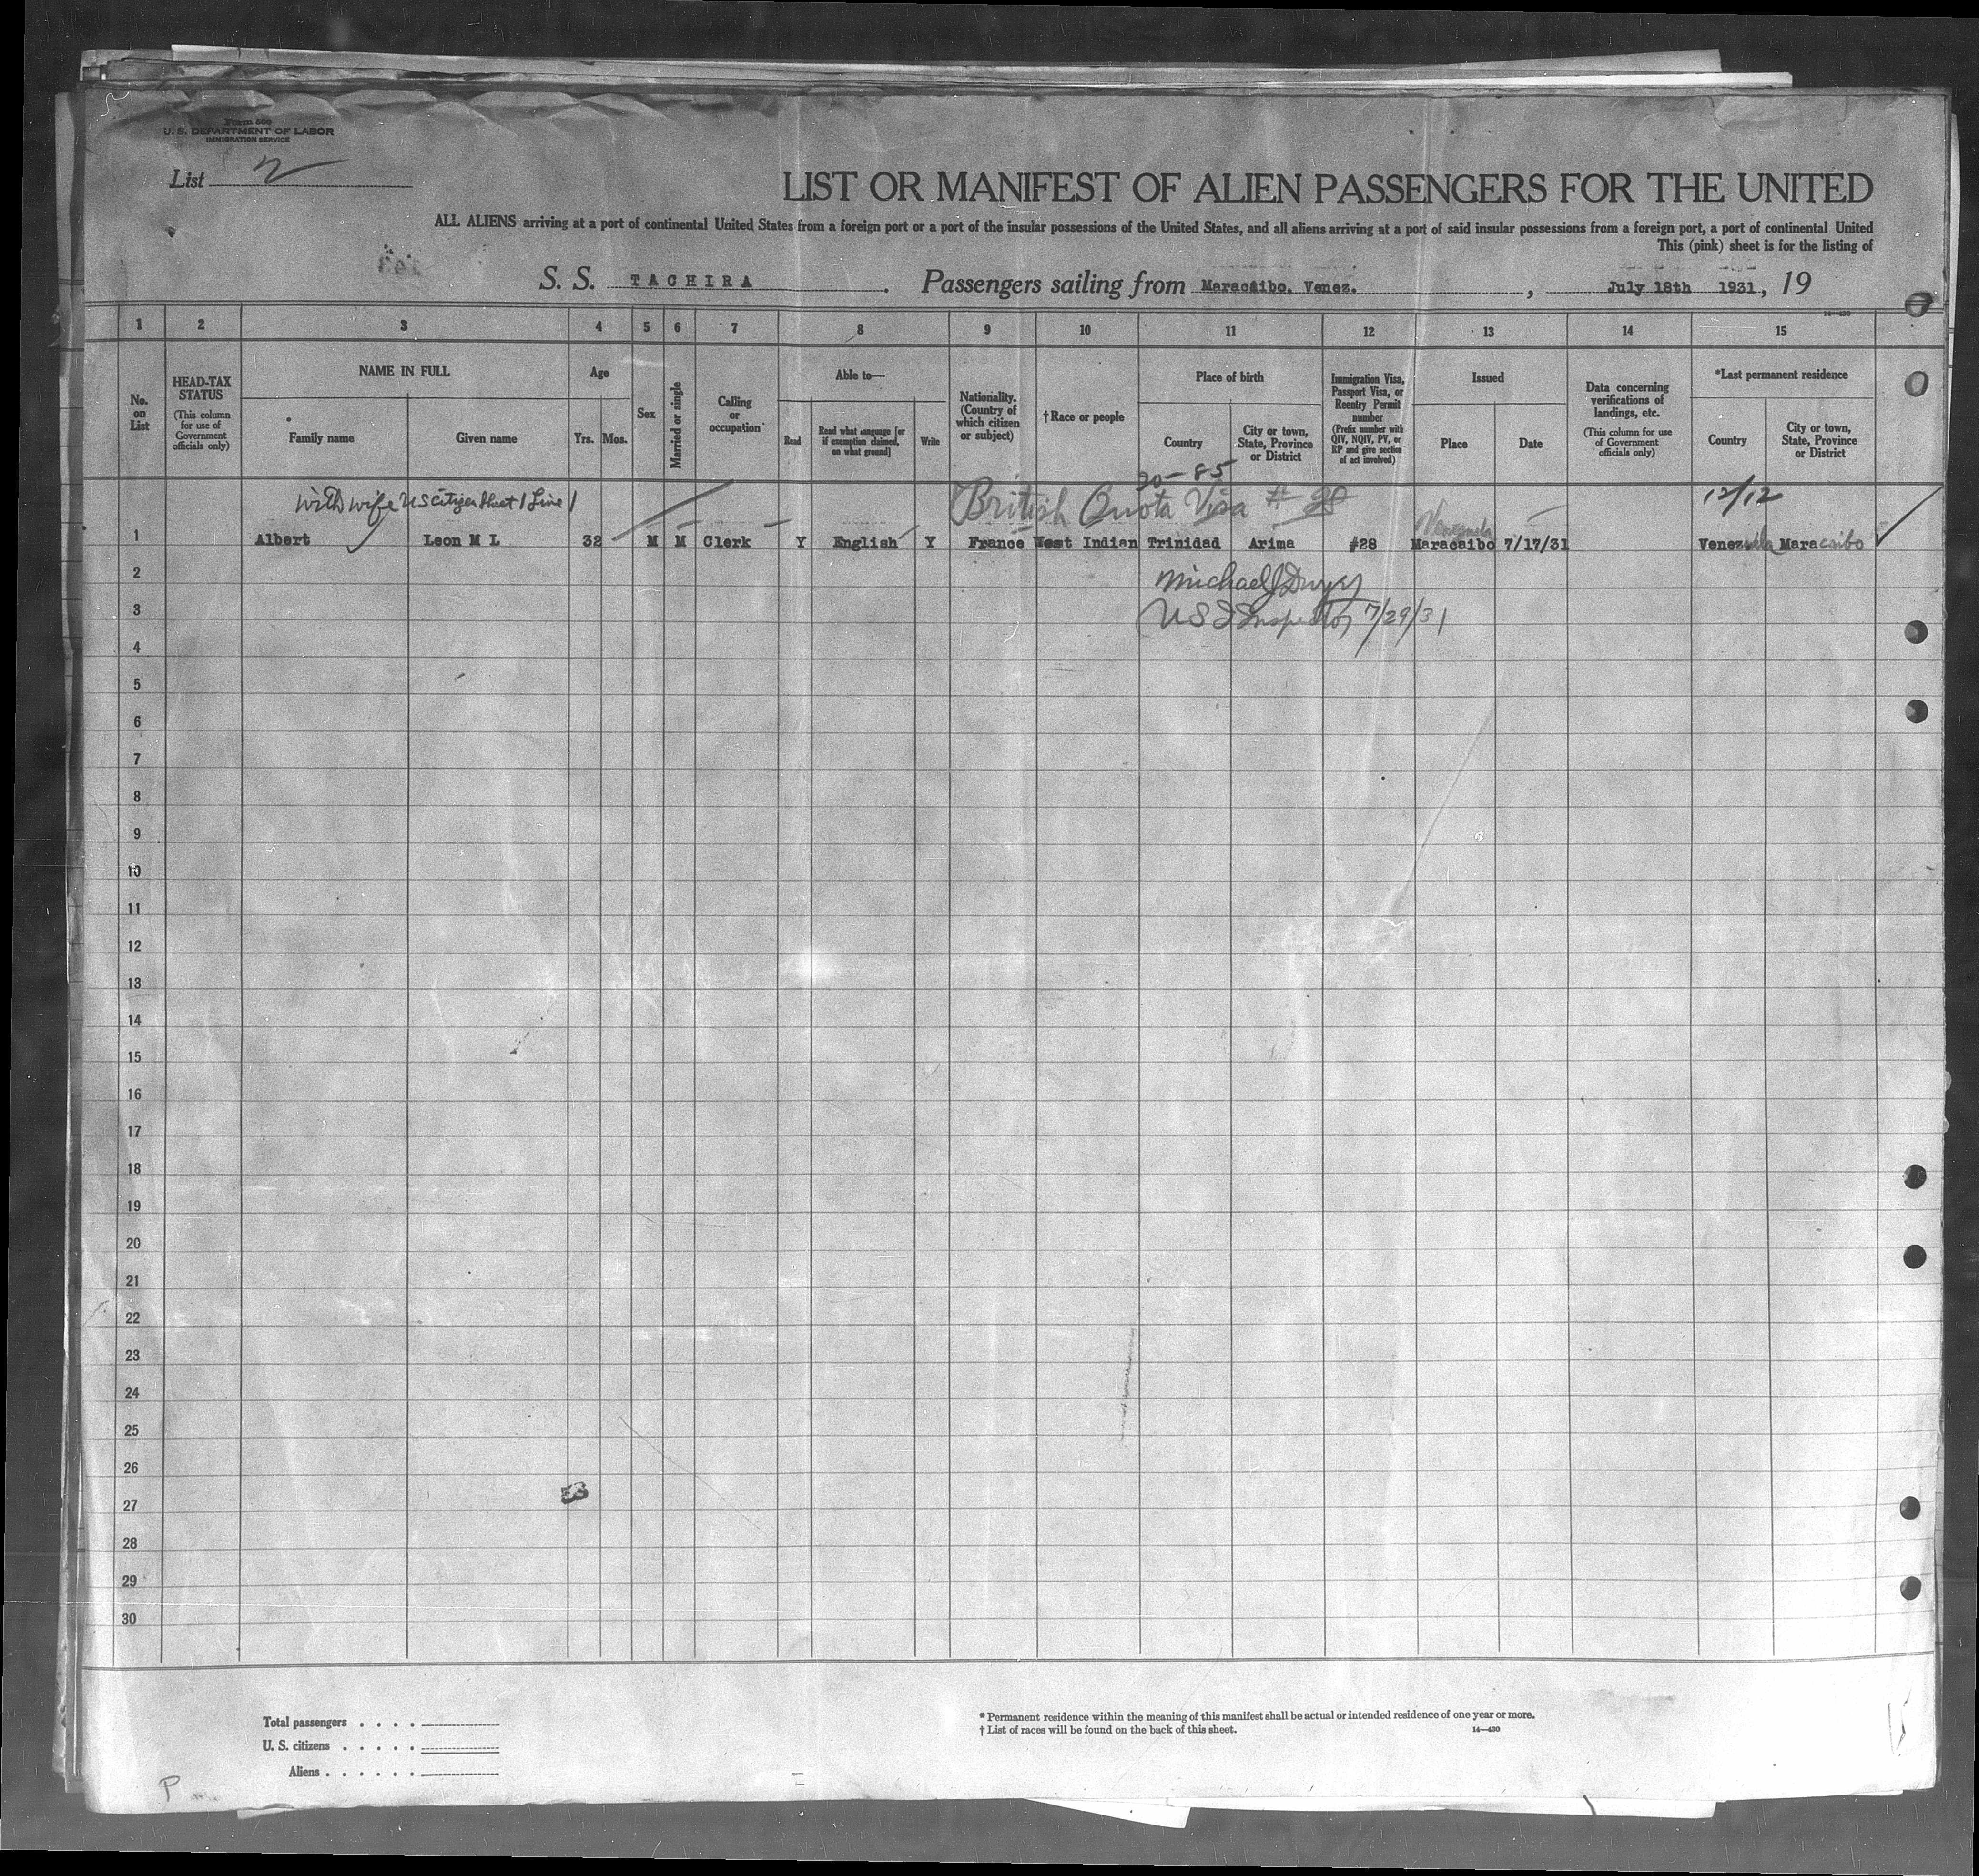 Form 500
U. S. DEPARTMENT OF LABOR
IMMIGRATION SERVICE
List 2
LIST OR MANIFEST OF ALIEN PASSENGERS FOR THE UNITED
ALL ALIENS arriving at a port of continental United States from a foreign port or a port of the insular possessions of the United States, and all aliens arriving at a port of said insular possessions from a foreign port, a port of continental United
This (pink) sheet is for the listing of
S. S. TACHIRA. Passengers sailing from Maracaibo, Venez., July 18th 1931, 19
14—430
1 2 3 4 5 6 7 8 9 10 11 12 13 14 15
No. on List
HEAD-TAX STATUS (This column for use of Government officials only)
NAME IN FULL
Family name Given name
Age
Yrs. Mos.
Sex
Married or single
Calling or occupation
Able to—
Read
Read what language [or if exemption claimed, on what ground]
Write
Nationality. (Country of which citizen or subject)
†Race or people
Place of birth
Country
City or town, State, Province or District
Immigration Visa, Passport Visa, or Reentry Permit number (Prefix number with QIV, NQIV, PV, or RP and give section of act involved)
Issued
Place Date
Data concerning verifications of landings, etc. (This column for use of Government officials only)
*Last permanent residence
Country
City or town, State, Province or District
30-85
With wife US Citizen Sheet 1 Line 1 British Quota Visa # 28 12/12
Venezuela
1 Albert Leon M L 32 M M Clerk Y English Y France West Indian Trinidad Arima #28 Maracaibo 7/17/31 Venezuela Maracaibo
2 Michael J Dwyer
3 US I Inspector 7/29/31
4
5
6
7
8
9
10
11
12
13
14
15
16
17
18
19
20
21
22
23
24
25
26
27
28
29
30
Total passengers . . . .
U. S. citizens . . . . .
Aliens . . . . . .
* Permanent residence within the meaning of this manifest shall be actual or intended residence of one year or more.
† List of races will be found on the back of this sheet. 14—430
P